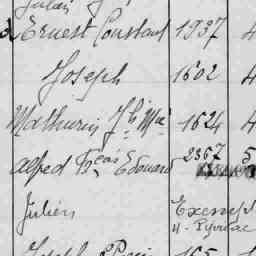 Julien
Ernest Constant 1937 4
Joseph 1602 4
Mathurin Jh Mie 1624 4
Alfred Fçois Edouard 2367 5
Julien Exempt
Joseph 165